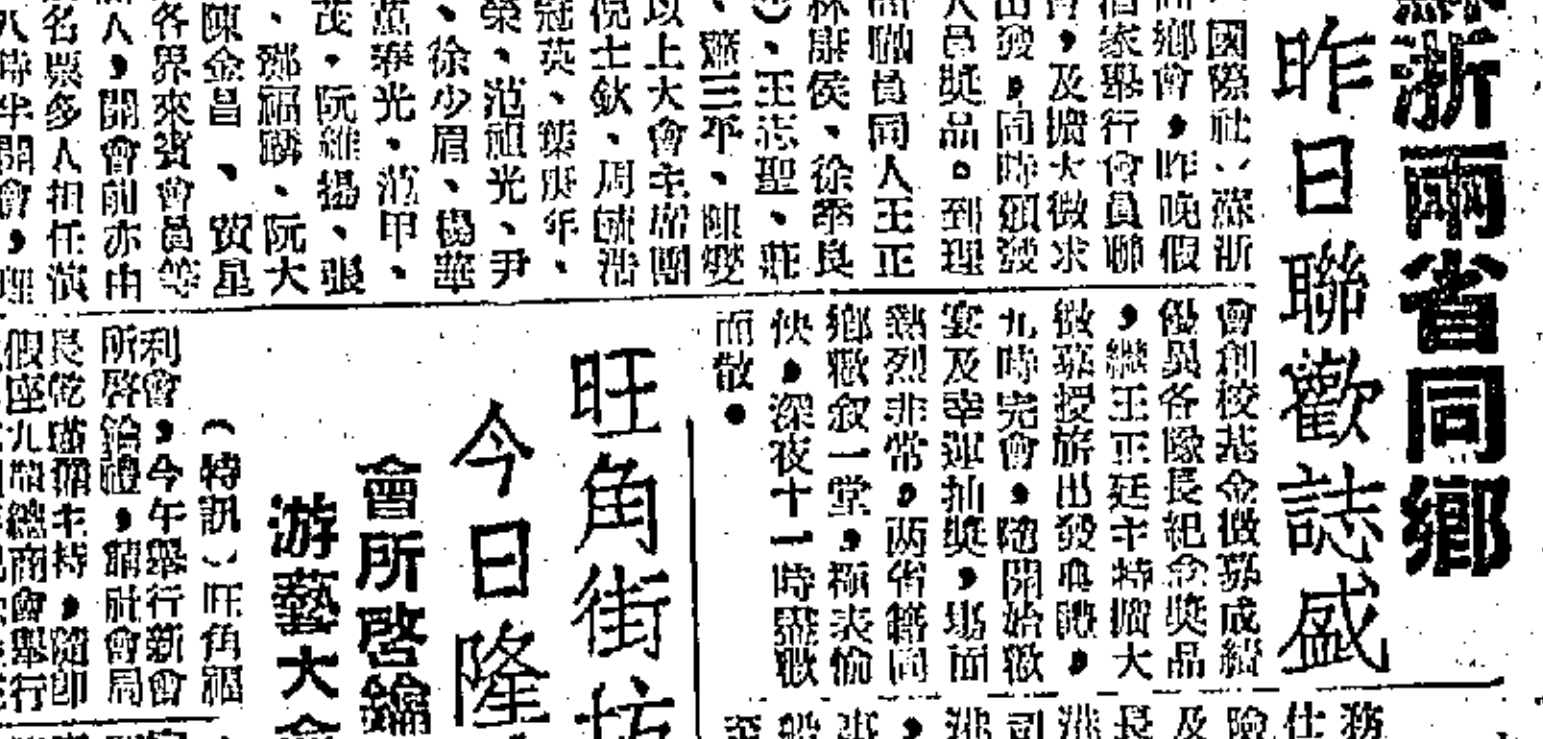 浙兩省同鄉
昨日聯歡誌盛
國際社)蘇浙
鄉會,昨晚假
家舉行會員聯
,及擴大徵求
出發,同時頒發
人員獎品。到理
職員同人王正
林康侯、徐季良
、王志聖、莊
、嚴三平、陳燮
以上大會主席團
倪士欽、周毓浩
冠英、葉庚年、
榮、范祖光、尹
、徐少眉、楊華
春光、范甲、
茂、阮維揚、張
、鄧福麟、阮大
陳金昌、賀星
各界來賓會員等
人,開會前亦由
名票多人担任演
八時半開會,理
會創校基金徵募成績
優異各隊長紀念獎品
,繼王正廷主持擴大
徵募授旗出發典禮,
九時完會,隨開始歡
宴及幸運抽獎,場面
熱烈非常,兩省籍同
鄉歡叙一堂,極表愉
快,深夜十一時盡歡
而散。
旺角街坊
今日隆
會所啓鑰
游藝大會
(特訊)旺角福
利會,今午舉行新會
所啓鑰禮,請社會局
長乾瑾主持,隨即
假座九總商會舉行
務
仕
險
及
長
港
司
港
,